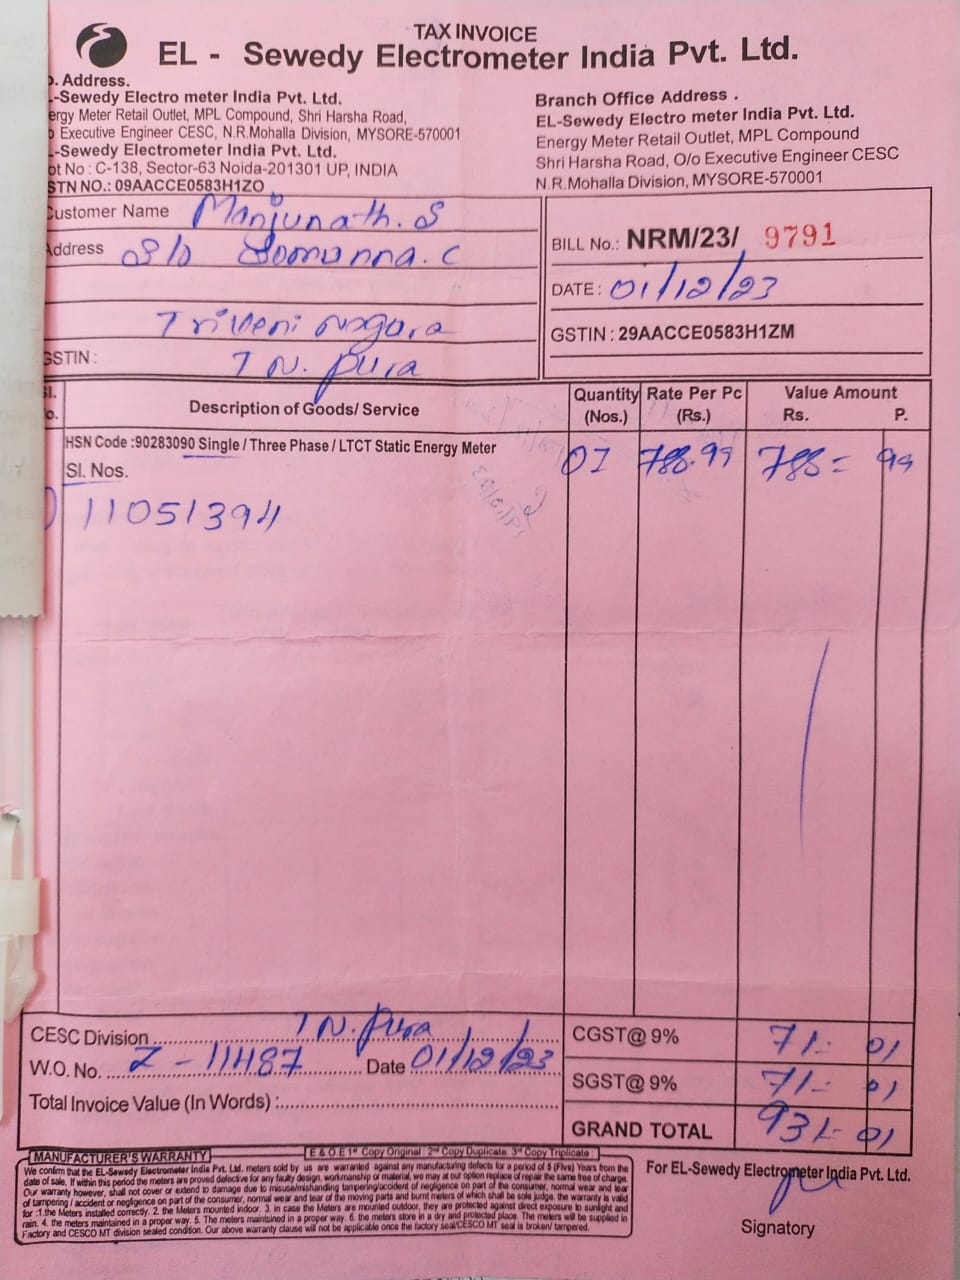 TAX INVOICE
EL - Sewedy Electrometer India Pvt. Ltd.
. Address.
-Sewedy Electro meter India Pvt. Ltd.
ergy Meter Retail Outlet, MPL Compound, Shri Harsha Road,
Executive Engineer CESC, N.R.Mohalla Division, MYSORE-570001
-Sewedy Electrometer India Pvt. Ltd.
ot No : C-138, Sector-63 Noida-201301 UP, INDIA
STN NO.: 09AACCE0583H1ZO
Branch Office Address .
EL-Sewedy Electro meter India Pvt. Ltd.
Energy Meter Retail Outlet, MPL Compound
Shri Harsha Road, O/o Executive Engineer CESC
N.R.Mohalla Division, MYSORE-570001
ustomer Name Manjunath. S
Address S/o Somanna. C
Triveni Nagara
GSTIN : T N. Pura
BILL No.: NRM/23/ 9791
DATE : 01/12/23
GSTIN : 29AACCE0583H1ZM
Sl. No. Description of Goods/ Service Quantity (Nos.) Rate Per Pc (Rs.) Value Amount Rs. P.
HSN Code :90283090 Single / Three Phase / LTCT Static Energy Meter 01 788.99 788= 99
Sl. Nos.
11051394
CESC Division T N. Pura
W.O. No. Z - 11487 Date 01/12/23
Total Invoice Value (In Words) :
CGST@ 9% 71- 01
SGST@ 9% 71- 01
GRAND TOTAL 931- 01
E & O.E 1st Copy Original : 2nd Copy Duplicate. 3rd Copy Triplicate :
MANUFACTURER'S WARRANTY
We confirm that the EL-Sewedy Electrometer India Pvt. Ltd. meters sold by us are warranted against any manufacturing defects for a period of 5 (Five) Years from the
date of sale. If within this period the meters are proved defective for any faulty design, workmanship or material, we may at our option replace of repair the same free of charge.
Our warranty however, shall not cover or extend to damage due to misuse/mishandling tampering/accident of negligence on part of the consumer, normal wear and tear
of tampering / accident or negligence on part of the consumer, normal wear and tear of the moving parts and burnt meters of which shall be sole judge. the warranty is valid
for :1.the Meters installed correctly. 2. the Meters mounted indoor. 3. in case the Meters are mounted outdoor, they are protected against direct exposure to sunlight and
rain. 4. the meters maintained in a proper way. 5. The meters maintained in a proper way. 6. the meters store in a dry and protected place. The meters will be supplied in
Factory and CESCO MT division sealed condition. Our above warranty clause will not be applicable once the factory seal/CESCO MT seal is broken/ tampered.
For EL-Sewedy Electrometer India Pvt. Ltd.
Signatory